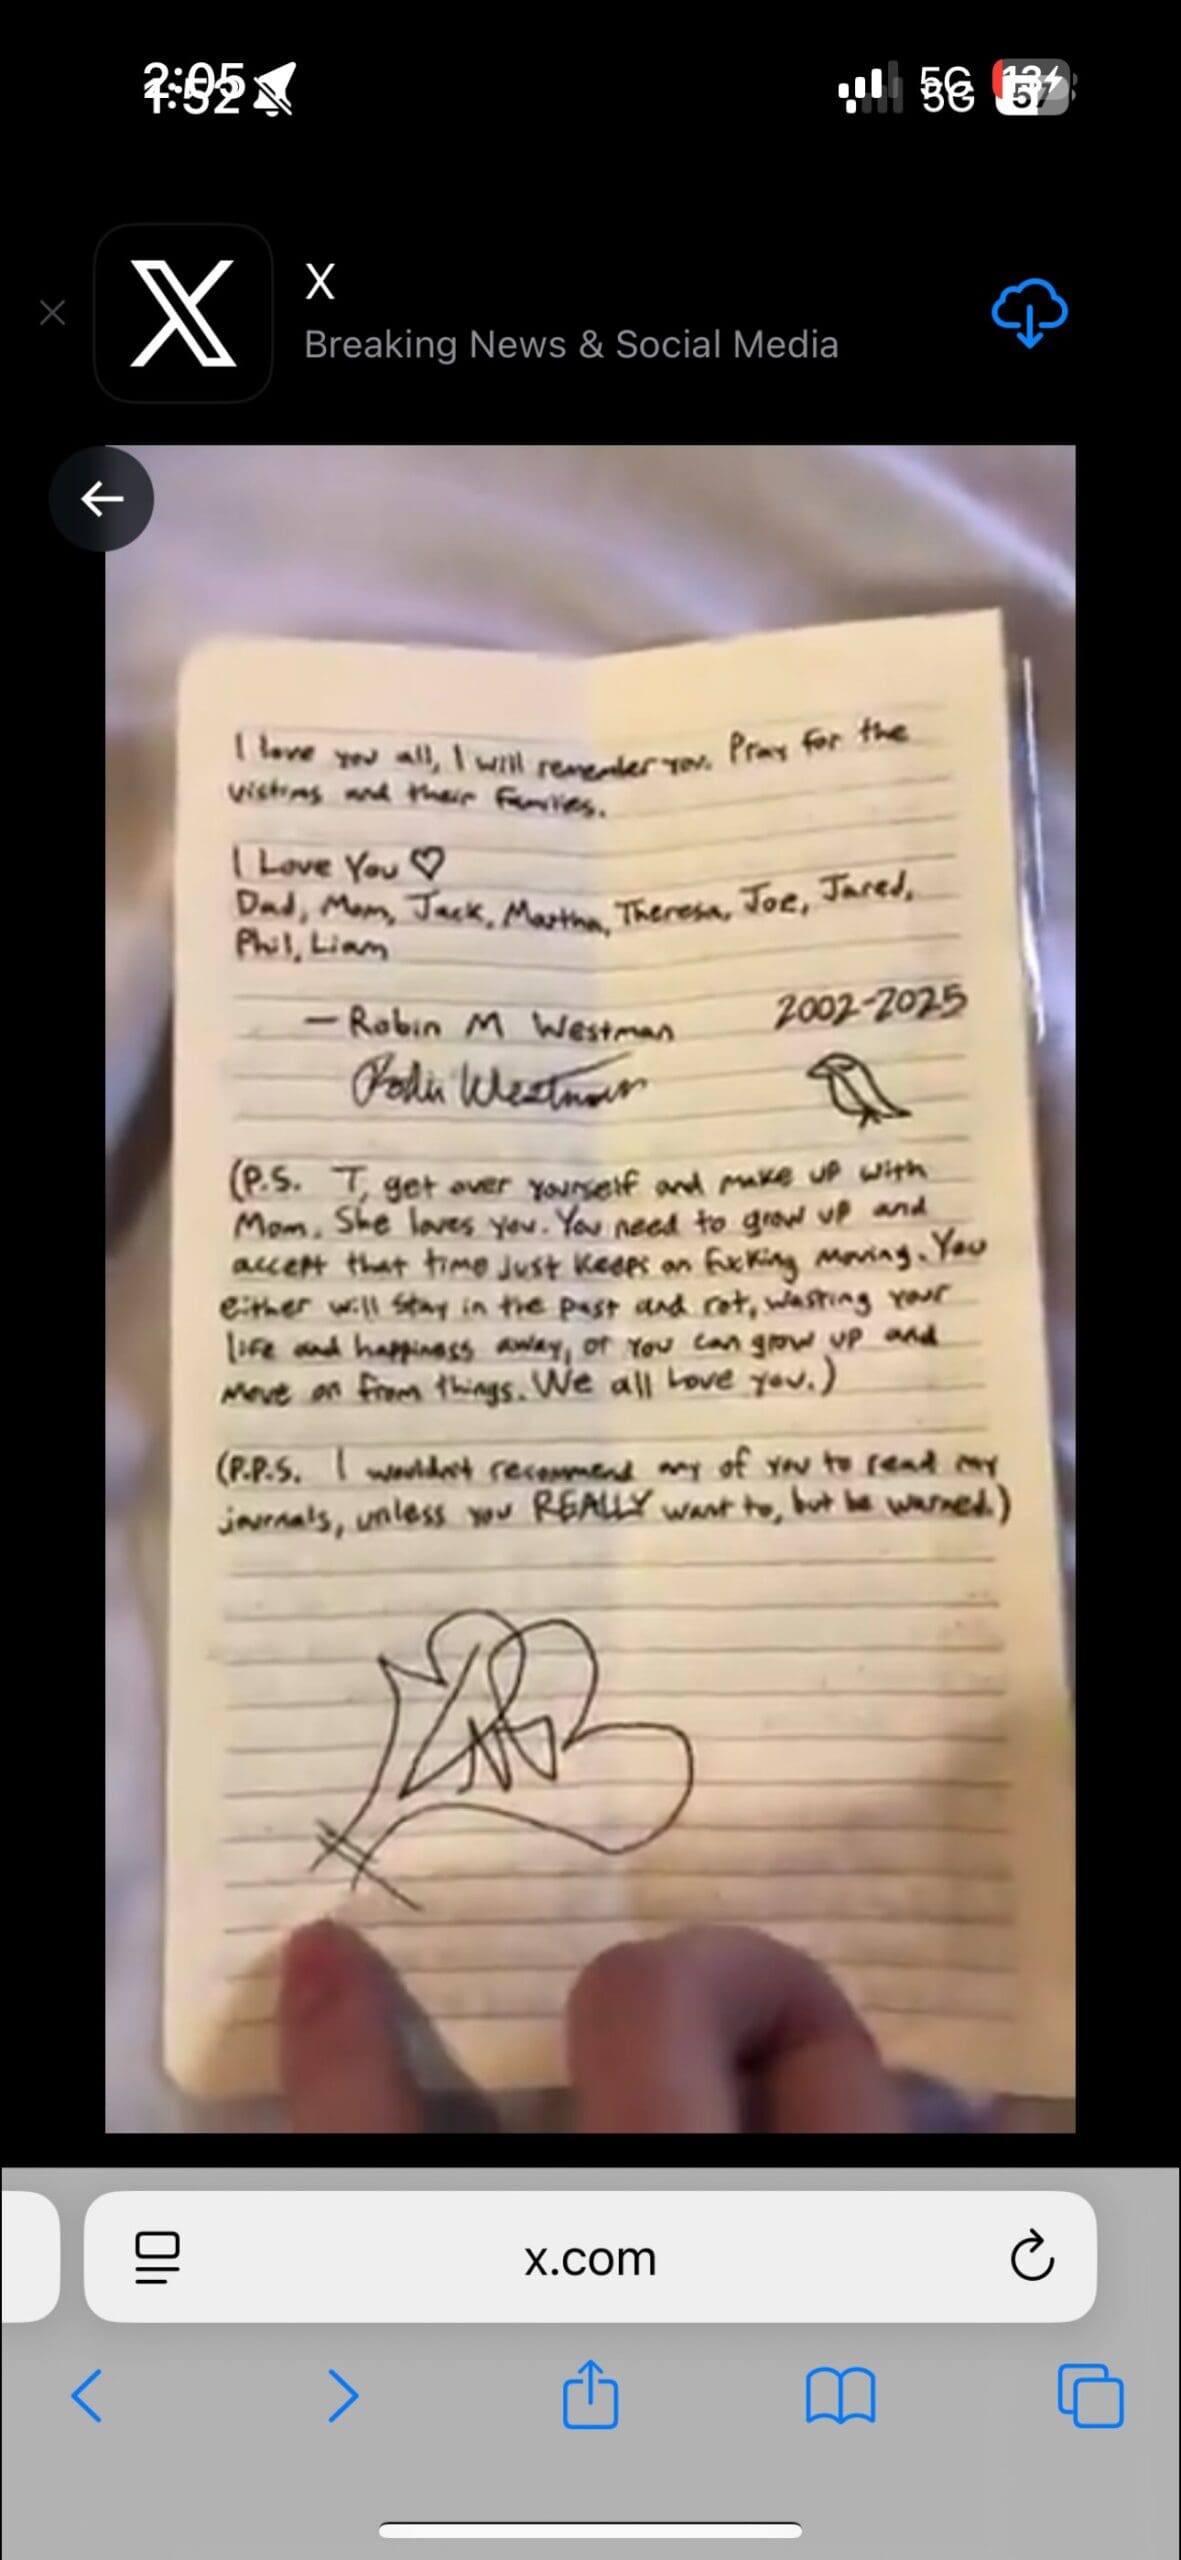 X
Breaking News & Social Media
I love you all, I will remember you. Pray for the
victims and their families.
I Love You ♡
Dad, Mom, Jack, Martha, Theresa, Joe, Jared,
Phil, Liam
— Robin M Westman 2002-2025
Robin Westman
(P.S. T, get over yourself and make up with
Mom. She loves you. You need to grow up and
accept that time just keeps on fucking moving. You
either will stay in the past and rot, wasting your
life and happiness away, or you can grow up and
move on from things. We all love you.)
(P.P.S. I wouldn't recommend any of you to read my
journals, unless you REALLY want to, but be warned.)
x.com